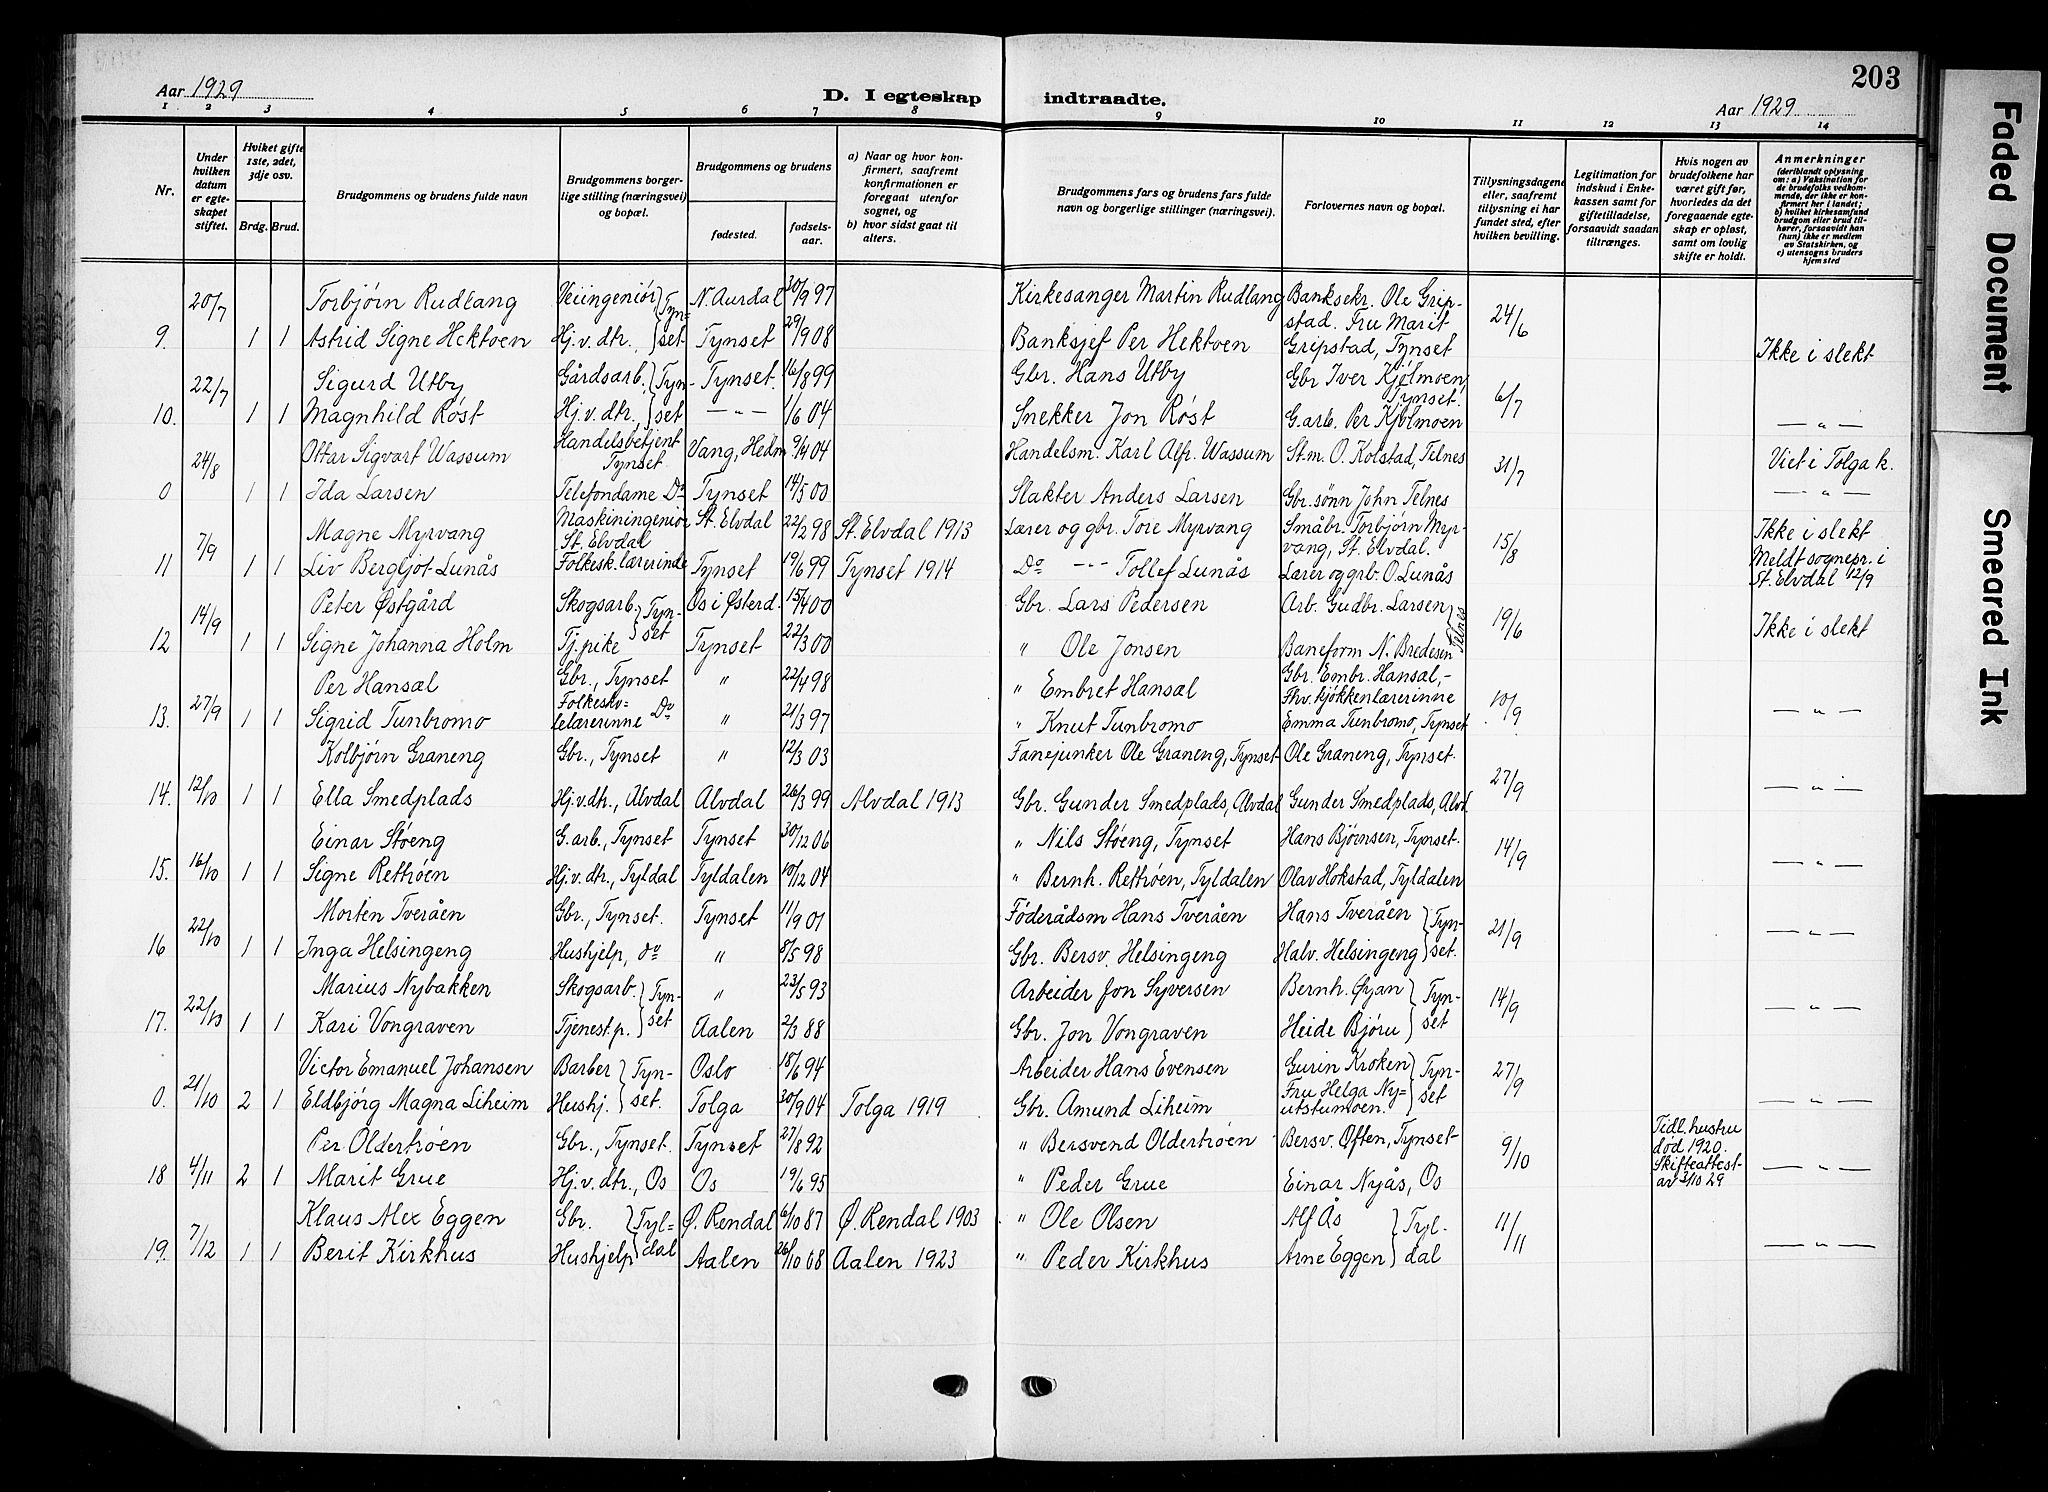 203
Aar 1929
D. I egteskap indtraadte.
Aar 1929
1 2 3 4 5 6 7 8 9 10 11 12 13 14
Nr.
Under hvilken datum er egteskapet stiftet.
Hviket gifte 1ste, 2det, 3dje osv.
Brdg. Brud.
Brudgommens og brudens fulde navn
Brudgommens borgerlige stilling (næringsvei) og bopæl.
Brudgommens og brudens
fødested.
fødselsaar.
a) Naar og hvor konfirmert, saafremt konfirmationen er foregaat utenfor sognet, og
b) hvor sidst gaat til alters.
Brudgommens fars og brudens fars fulde navn og borgerlige stillinger (næringsvei).
Forlovernes navn og bopæl.
Tillysningsdagene eller, saafremt tillysning ei har fundet sted, efter hvilken bevilling.
Legitimation for indskud i Enkekassen samt for giftetilladelse, forsaavidt saadan tiltrænges.
Hvis nogen av brudefolkene har været gift før, hvorledes da det foregaaende egteskap er opløst, samt om lovlig skifte er holdt.
Anmerkninger (deriblandt oplysning om: a) Vaksination for de brudefolks vedkommende, der ikke er konfirmert her i landet; b) hvilket kirkesamfund brudgom eller brud tilhører, forsaavidt han (hun) ikke er medlem av Statskirken, og c) utensogns bruders hjemsted
20/7 Torbjørn Rudlang Veiingeniør } Tyn= N. Aurdal 30/9 97 Kirkesanger Martin Rudlang Banksekr. Ole Gripstad. Fru Marit 24/6
9. 1 1 Astrid Signe Hektoen Hj.v. dtr. } set Tynset 29/9 08 Banksjef Per Hektoen Gripstad, Tynset Ikke i slekt
22/7 Sigurd Utby Gårdsarb. } Tyn- Tynset. 16/8 99 Gbr. Hans Utby Gbr Iver Kjølmoen, Tynset. 6/7
10. 1 1 Magnhild Røst Hj.v. dtr. } set — „ — 1/6 04 Snekker Jon Røst G.arb. Per Kjølmoen — „ —
24/8 Ottar Sigvart Wassum Handelsbetjent Tynset Vang, Hedm 9/4 04 Handelsm. Karl Alfr. Wassum St.m. O. Kolstad, Telnes 31/7 Viet i Tolga k.
0 1 1 Ida Larsen Telefondame Do Tynset 14/5 00 Slakter Anders Larsen Gbr. sønn John Telnes — „ —
7/9 Magne Myrvang Maskiningeniør St. Elvdal St. Elvdal 22/2 98 St. Elvdal 1913 Lærer og gbr. Tore Myrvang Småbr. Torbjørn Myrvang, St. Elvdal. 15/8 Ikke i slekt
11 1 1 Liv Bergljot Lunås Folkesk. lærerinde Tynset 19/6 99 Tynset 1914 Do --- Tollef Lunås Lærer og grb. O. Lunås Meldt sognepr. i St. Elvdal 12/9
14/9 Peter Østgård Skogsarb. } Tyn- Os i Østerd. 15/4 00 Gbr. Lars Pedersen Arb. Gudbr. Larsen } Telnes 19/6
12 1 1 Signe Johanna Holm Tj. pike } set Tynset 22/3 00 „ Ole Jonsen Baneform N. Bredesen Ikke i slekt
27/9 Per Hansæl Gbr., Tynset „ 22/4 98 „ Embret Hansæl Gbr. Embr. Hansæl, - 10/9
13. 1 1 Sigrid Tunbromo Folkeskolelærerinne Do „ 21/3 97 „ Knut Tunbromo Fhv. kjøkkenlærerinne Emma Tunbromo, Tynset — „ —
12/10 Kolbjørn Graneng Gbr., Tynset „ 12/3 03 Fanejunker Ole Graneng, Tynset Ole Graneng, Tynset. 27/9
14. 1 1 Ella Smedplads Hj.v. dtr., Alvdal Alvdal 26/3 99 Alvdal 1913 Gbr. Gunder Smedplads, Alvdal Gunder Smedplads, Alvd. — „ —
16/10 Einar Støeng G.arb., Tynset Tynset 30/12 06 „ Nils Støeng, Tynset Hans Bjørnsen, Tynset. 14/9
15. 1 1 Signe Rettrøen Hj.v. dtr., Tyldal Tyldalen 10/12 04 „ Bernh. Rettrøen, Tyldalen Olav Hokstad, Tyldalen — „ —
22/10 Morten Tveråen Gbr., Tynset. Tynset 11/9 01 Føderådsm Hans Tveråen Hans Tveråen } Tyn- 21/9
16 1 1 Inga Helsingeng Hushjelp, do „ 8/5 98 Gbr. Bersv. Helsingeng Halv. Helsingeng } set. — „ —
22/10 Marius Nybakken Skogsarb. } Tyn- „ 23/5 93 Arbeider Jon Syversen Bernh. Øyan } Tyn- 14/9
17. 1 1 Kari Vongraven Tjenest.p. } set Aalen 2/3 88 Gbr. Jon Vongraven Heide Bjøru } set — „ —
21/10 Victor Emanuel Johansen Barber } Tyn- Oslo 18/6 94 Arbeider Hans Evensen Gurin Kroken } Tyn- 27/9
0. 2 1 Eldbjørg Magna Liheim Hushj. } set. Tolga 30/9 04 Tolga 1919 Gbr. Amund Liheim Fru Helga Nyutstumoen. } set — „ —
4/11 Per Oldertrøen Gbr., Tynset. Tynset 27/8 92 „ Bersvend Oldertrøen Bersv. Øften, Tynset 9/10 Tidl. hustru død 1920.
18 2 1 Marit Grue Hj.v. dtr., Os Os 19/6 95 „ Peder Grue Einar Nyås, Os Skifteattest av 3/10 29 — „ —
7/12 Klaus Alex Eggen Gbr. } Tyl= Ø. Rendal 6/10 87 Ø. Rendal 1903 „ Ole Olsen Alf Ås } Tyl- 11/11
19. 1 1 Berit Kirkhus Hushjelp } dal Aalen 26/10 08 Aalen 1923 „ Peder Kirkhus Arne Eggen } dal — „ —
Faded Document
Smeared Ink